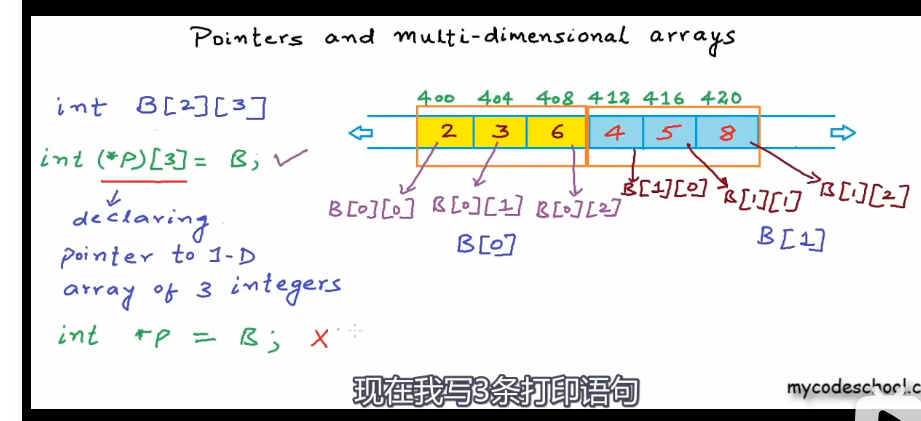 Pointers and multi-dimensional arrays
int B[2][3]
int (*P)[3] = B; ✓
declaring
pointer to 1-D
array of 3 integers
int *P = B; X
400 404 408 412 416 420
2 3 6 4 5 8
B[0][0] B[0][1] B[0][2] B[1][0] B[1][1] B[1][2]
B[0] B[1]
现在我写3条打印语句
mycodeschool.c